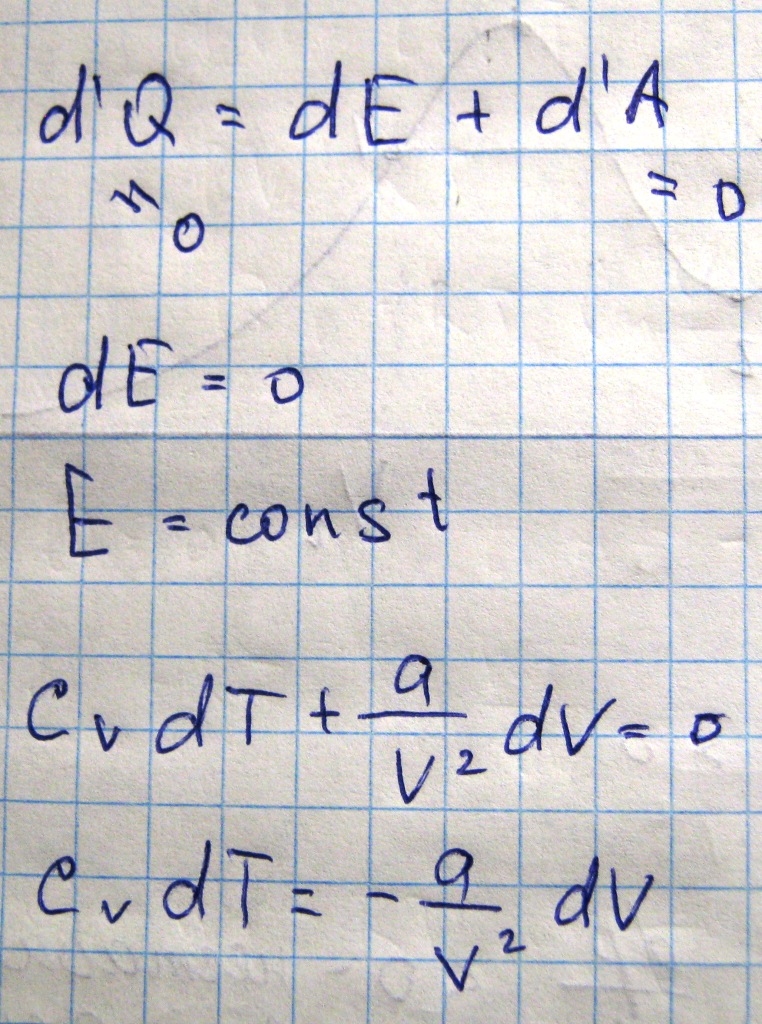 d'Q = dE + d'A
= 0 = 0
dE = 0
E = const
Cv dT + a/V² dV = 0
Cv dT = - a/V² dV